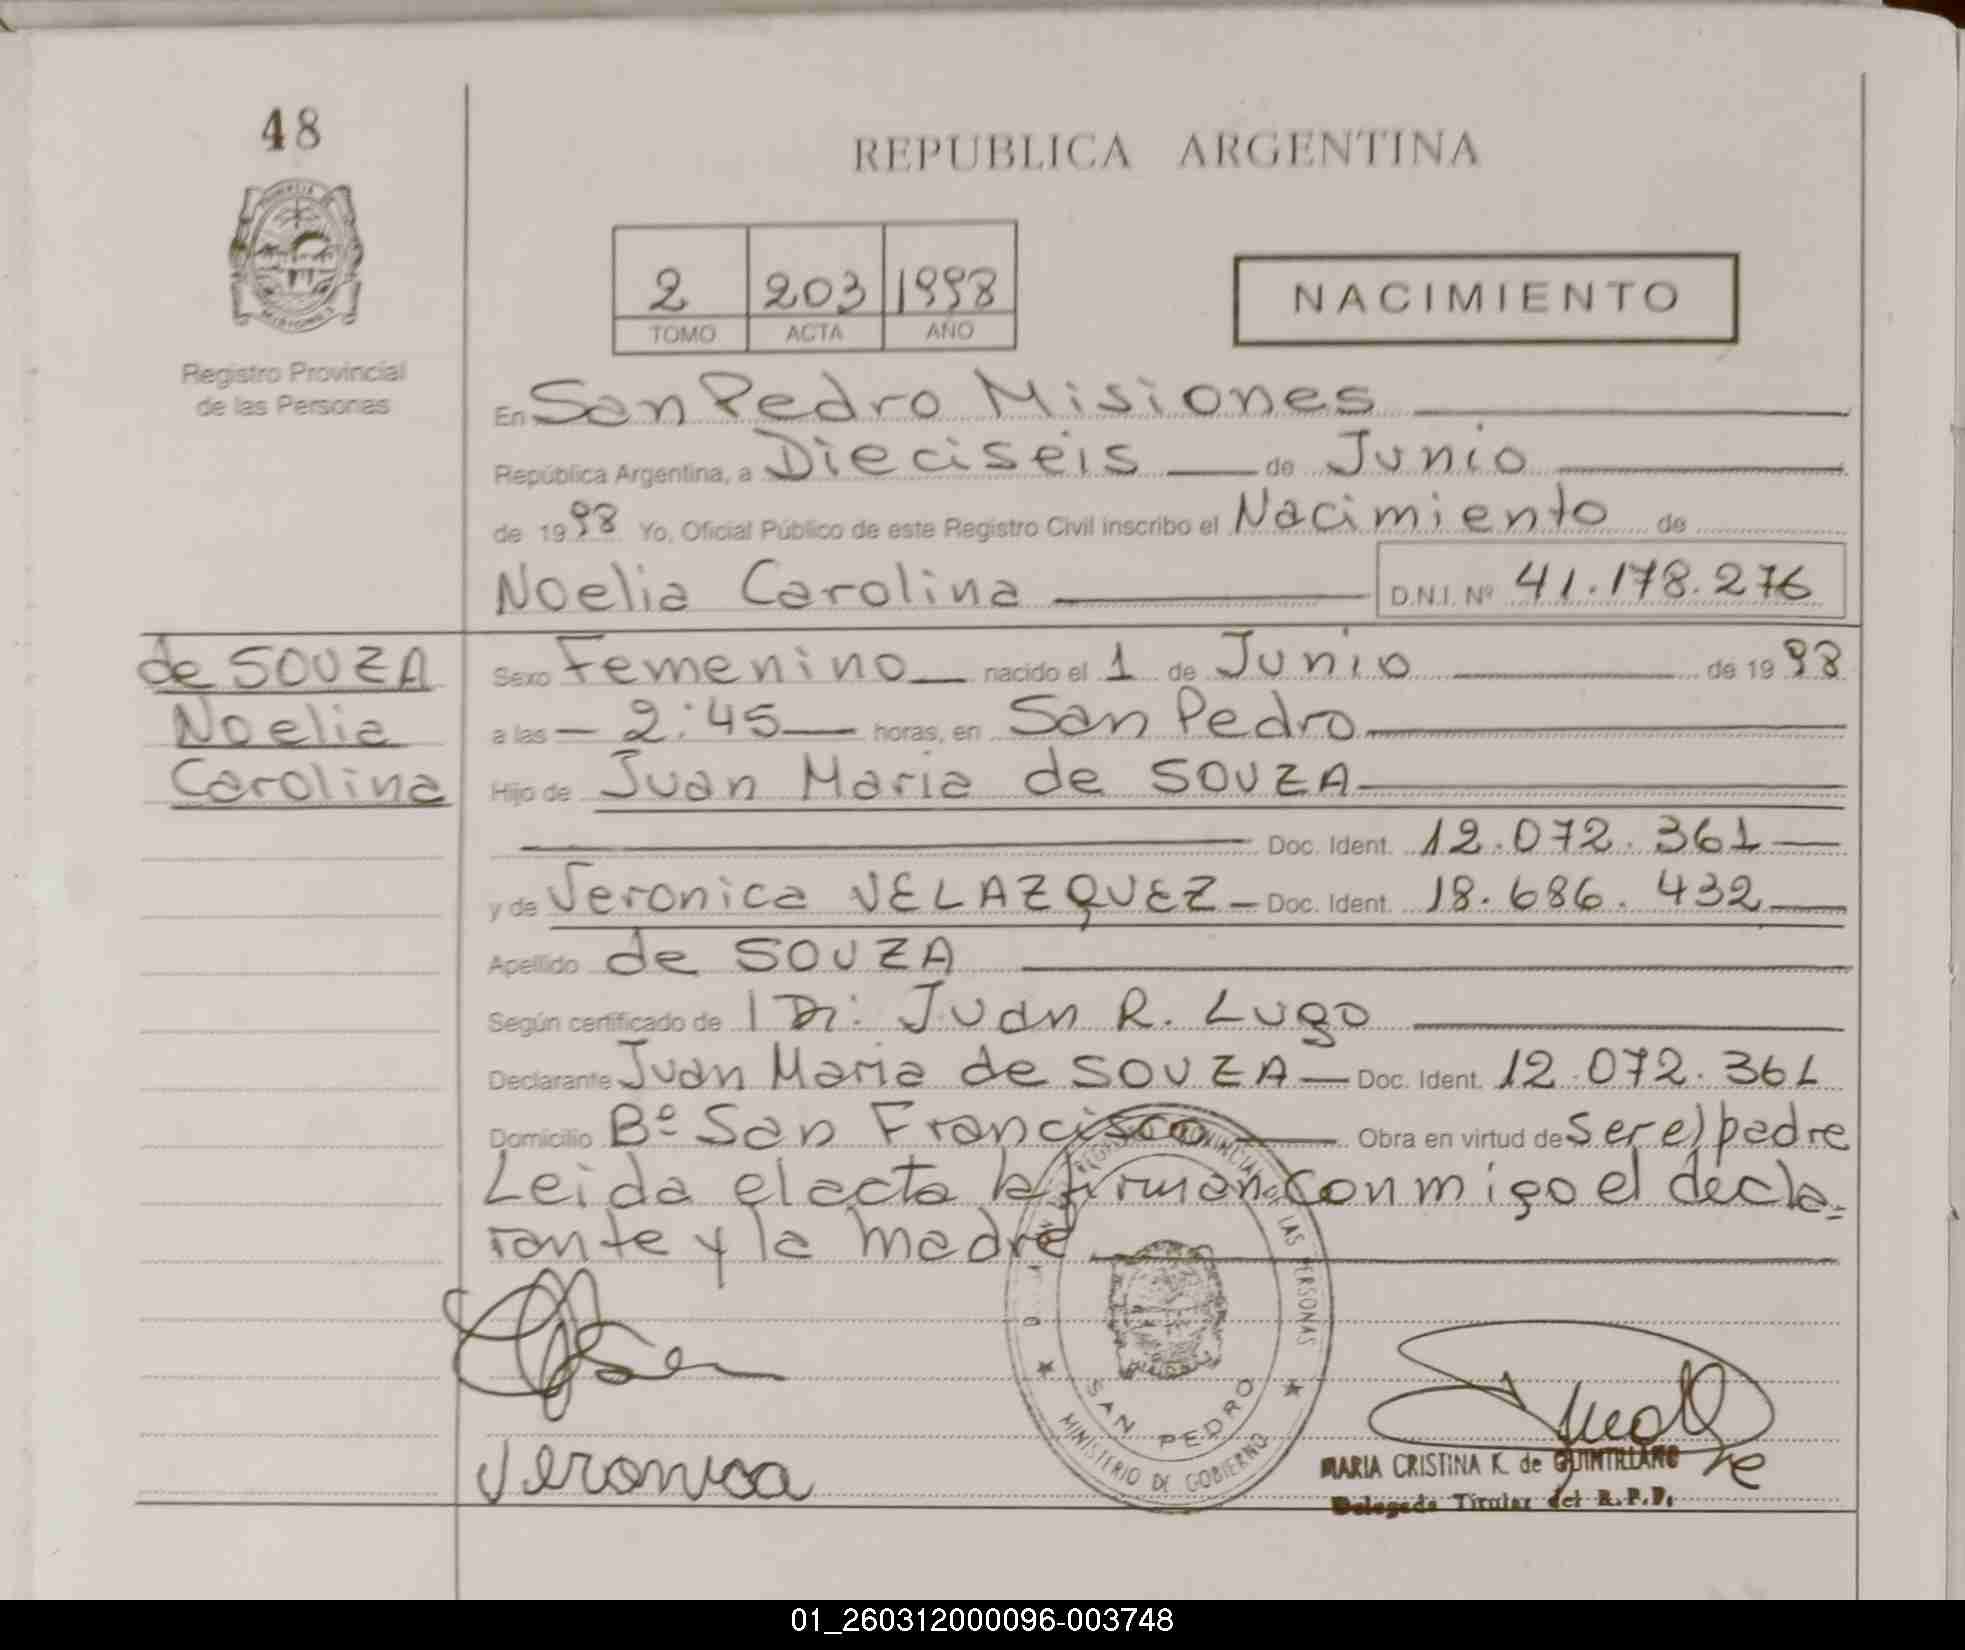 48
REPUBLICA ARGENTINA
2 203 1998
TOMO ACTA AÑO
NACIMIENTO
Registro Provincial
de las Personas
En San Pedro Misiones
República Argentina, a Dieciseis de Junio
de 1998 Yo, Oficial Público de este Registro Civil inscribo el Nacimiento de
Noelia Carolina D.N.I. Nº 41.178.276
de SOUZA
Noelia
Carolina
Sexo Femenino nacido el 1 de Junio de 1998
a las 2:45 horas, en San Pedro
Hijo de Juan Maria de SOUZA
Doc. Ident. 12.072.361
y de Veronica VELAZQUEZ Doc. Ident. 18.686.432
Apellido de SOUZA
Según certificado de Dr: Juan R. Lugo
Declarante Juan Maria de SOUZA Doc. Ident. 12.072.361
Domicilio Bº San Francisco Obra en virtud de ser el padre
Leida el acta la firman conmigo el decla=
rante y la madre
REGISTRO PROVINCIAL DE LAS PERSONAS
SAN PEDRO
MINISTERIO DE GOBIERNO
Veronica
MARIA CRISTINA K. de QUINTILLANO
Delegada Titular del R.P.P.
01_260312000096-003748